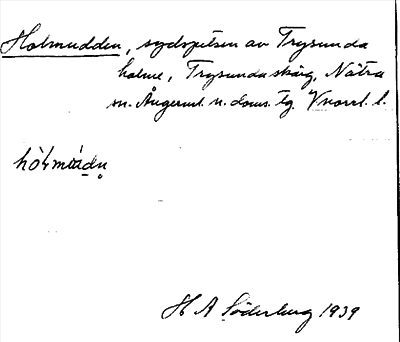 Holmudden, sydspetsen av Trysunda
holme, Trysundaskärg, Nätra
sn. Ångerml. n. doms. tg. Vnorrl. l.
H A Söderberg 1939